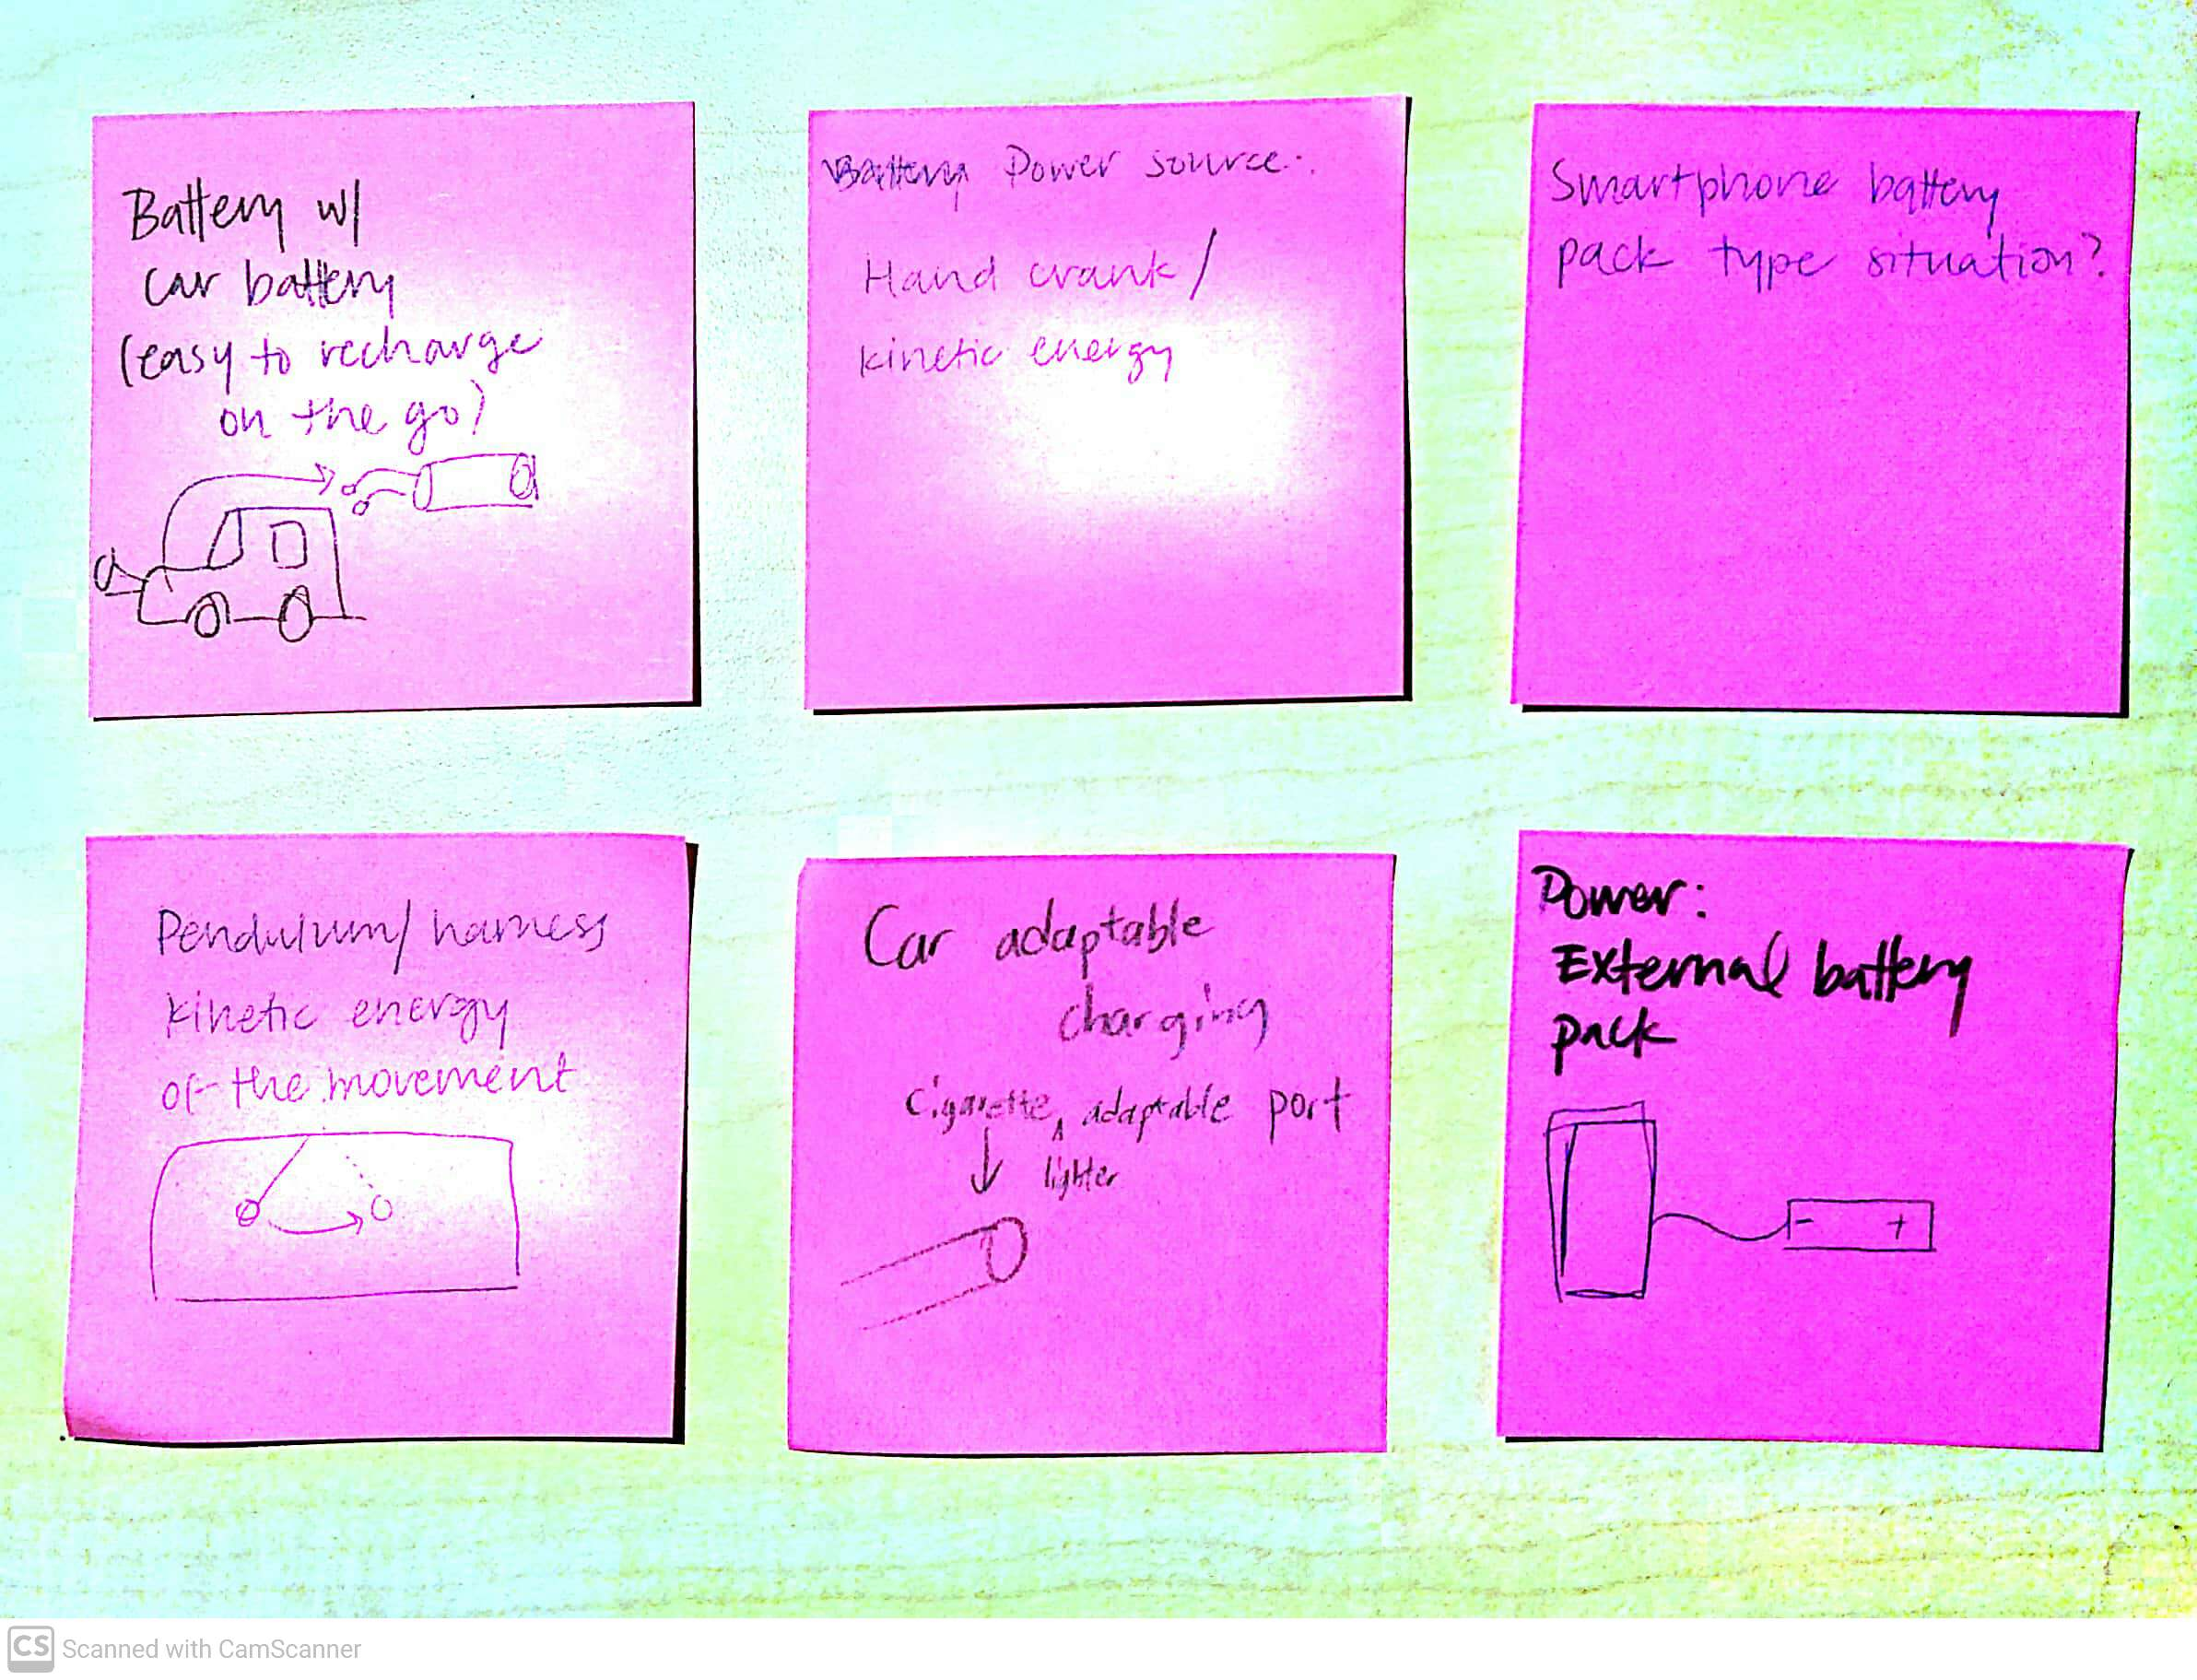 Battery w/
car battery
(easy to recharge
on the go)
Battery Power source:
Hand crank/
kinetic energy
Smartphone battery
pack type situation?
Pendulum/harness
kinetic energy
of the movement
Car adaptable
charging
cigarette ^ adaptable port
lighter
Power:
External battery
pack
- +
CS Scanned with CamScanner